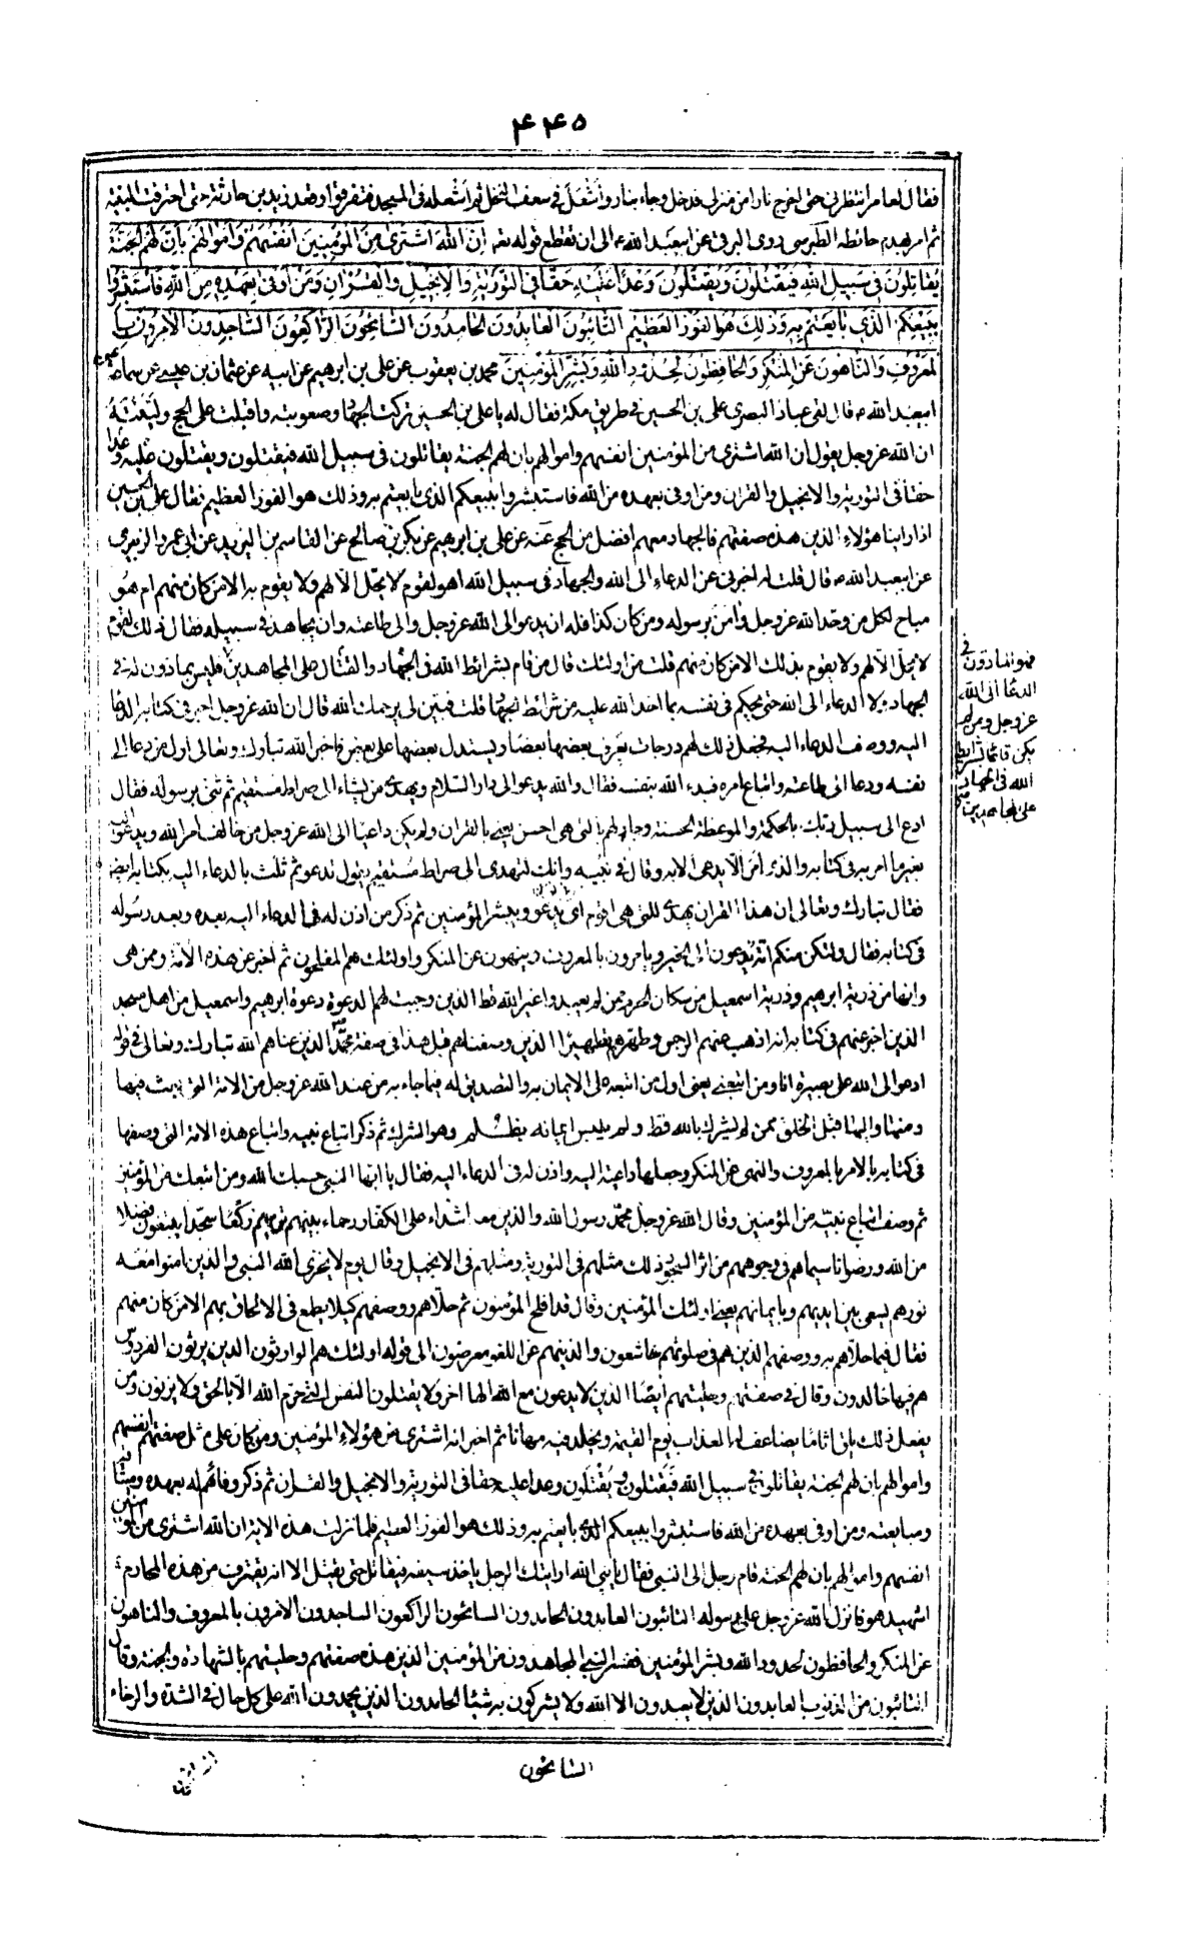 ۴۴۵
فقال لعامر انتظرنی حتی اخرج نارا من منزلی فدخل وجاء بنار واشعل فی سعف النخل ثم اشعله فی المسجد فتفرقوا وقعد زید بن حارثة حتی احترقت البنیة
ثم امر بهدم حائطه الطبرسی روی البرقی عن ابیعبد الله ع الی ان تقطع قوله تعم ان الله اشتری من المؤمنین انفسهم واموالهم بان لهم الجنة
یقاتلون فی سبیل الله فیقتلون ویقتلون وعدا علیه حقا فی التوریة والانجیل والقران ومن اوفی بعهده من الله فاستبشروا
ببیعکم الذی بایعتم به وذلک هو الفوز العظیم التائبون العابدون الحامدون السائحون الراکعون الساجدون الامرون با
لمعروف والناهون عن المنکر والحافظون لحدود الله وبشر المؤمنین محمد بن یعقوب عن علی بن ابرهیم عن ابیه عن عثمان بن عیسی عن سماعة عن
ابیعبد الله ع قال لقی عباد البصری علی بن الحسین فی طریق مکة فقال له یا علی بن الحسین ترکت الجهاد وصعوبته واقبلت علی الحج ولینته
ان الله عز وجل یقول ان الله اشتری من المؤمنین انفسهم واموالهم بان لهم الجنة یقاتلون فی سبیل الله فیقتلون ویقتلون علیه وعدا
حقا فی التوریة والانجیل والقران ومن اوفی بعهده من الله فاستبشروا ببیعکم الذی بایعتم به وذلک هو الفوز العظیم فقال علی بن الحسین
اذا راینا هؤلاء الذین هذه صفتهم فالجهاد معهم افضل من الحج عنه عن علی بن ابرهیم عن بکر بن صالح عن القاسم بن البرید عن ابی عمرو الزبیری
عن ابیعبد الله ع قال قلت له اخبرنی عن الدعاء الی الله والجهاد فی سبیل الله اهو لقوم لا یحل الا لهم ولا یقوم به الا من کان منهم ام هو
مباح لکل من وحد الله عز وجل وامن برسوله ومن کان کذا فله ان یدعو الی الله عز وجل والی طاعته وان یجاهد فی سبیله فقال ذلک لقوم
لا یحل الا لهم ولا یقوم بذلک الا من کان منهم قلت من اولئک قال من قام بشرائط الله فی الجهاد والقتال علی المجاهدین فلیس بماذون له فی
الجهاد ولا الدعاء الی الله حتی یحکم فی نفسه بما اخذ الله علیه من شرائط الجهاد قلت فبین لی یرحمک الله قال ان الله عز وجل اخبر فی کتابه الدعا
الیه ووصف الدعاء الیه فجعل ذلک لهم درجات یعرف بعضها بعضا ویستدل بعضها علی بعض فاخبر الله تبارک وتعالی اول من دعا الی
نفسه ودعا الی طاعته واتباع امره فبدء الله بنفسه فقال والله یدعو الی دار السلام ویهدی من یشاء الی صراط مستقیم ثم ثنی برسوله فقال
ادع الی سبیل ربک بالحکمة والموعظة الحسنة وجادلهم بالتی هی احسن یعنی بالقران ولم یکن داعیا الی الله عز وجل من خالف امر الله ویدعو الیه
بغیر ما امر به فی کتابه والذی امر الا یدعی الا به وقال فی نبیه وانک لتهدی الی صراط مستقیم یقول تدعو ثم ثلث بالدعاء الیه بکتابه ایضا
فقال تبارک وتعالی ان هذا القران یهدی للتی هی اقوم ای یدعو ویبشر المؤمنین ثم ذکر من اذن له فی الدعاء الیه بعده وبعد رسوله
فی کتابه فقال ولتکن منکم امة یدعون الی الخیر ویامرون بالمعروف وینهون عن المنکر واولئک هم المفلحون ثم اخبر عن هذه الامة وممن هی
وانها من ذریة ابرهیم وذریة اسمعیل من سکان الحرم ممن لم یعبدوا غیر الله قط الذین وجبت لهم الدعوة دعوة ابرهیم واسمعیل من اهل مسجد
الذین اخبر عنهم فی کتابه انه اذهب عنهم الرجس وطهرهم تطهیرا الذین وصفناهم قبل هذا فی صفة محمد الذین عناهم الله تبارک وتعالی فی قوله
ادعو الی الله علی بصیرة انا ومن اتبعنی یعنی اول من اتبعه علی الایمان به والتصدیق له فیما جاء به من عند الله عز وجل من الامة التی بعث فیها
ومنها والیها قبل الخلق ممن لم یشرک بالله قط ولم یلبس ایمانه بظلم وهو الشرک ثم ذکر اتباع نبیه واتباع هذه الامة التی وصفها
فی کتابه بالامر بالمعروف والنهی عن المنکر وجعلها داعیة الیه واذن له فی الدعاء الیه فقال یا ایها النبی حسبک الله ومن اتبعک من المؤمنین
ثم وصف اتباع نبیه من المؤمنین وقال الله عز وجل محمد رسول الله والذین معه اشداء علی الکفار رحماء بینهم تریهم رکعا سجدا یبتغون فضلا
من الله ورضوانا سیماهم فی وجوههم من اثر السجود ذلک مثلهم فی التوریة ومثلهم فی الانجیل وقال یوم لا یخزی الله النبی والذین امنوا معه
نورهم یسعی بین ایدیهم وبایمانهم یعنی اولئک المؤمنین وقال قد افلح المؤمنون ثم حلاهم ووصفهم کیلا یطمع فی الالحاق بهم الا من کان منهم
فقال فیما حلاهم به ووصفهم الذین هم فی صلوتهم خاشعون والذینهم عن اللغو معرضون الی قوله اولئک هم الوارثون الذین یرثون الفردوس
هم فیها خالدون وقال فی صفتهم وحلیتهم ایضا الذین لا یدعون مع الله الها اخر ولا یقتلون النفس التی حرم الله الا بالحق ولا یزنون ومن
یفعل ذلک یلق اثاما یضاعف له العذاب یوم القیمة ویخلد فیه مهانا ثم اخبر انه اشتری من هؤلاء المؤمنین ومن کان علی مثل صفتهم انفسهم
واموالهم بان لهم الجنة یقاتلون فی سبیل الله فیقتلون ویقتلون وعدا علیه حقا فی التوریة والانجیل والقران ثم ذکر وفائهم له بعهده ومیثاقه
ومبایعته ومن اوفی بعهده من الله فاستبشروا ببیعکم الذی بایعتم به وذلک هو الفوز العظیم فلما نزلت هذه الایة ان الله اشتری من المؤمنین
انفسهم واموالهم بان لهم الجنة قام رجل الی النبی فقال یا نبی الله ارایتک الرجل یاخذ سیفه فیقاتل حتی یقتل الا انه یقترف من هذه المحارم
اشهید هو فانزل الله عز وجل علی رسوله التائبون العابدون الحامدون السائحون الراکعون الساجدون الامرون بالمعروف والناهون
عن المنکر والحافظون لحدود الله وبشر المؤمنین ففسر النبی المجاهدون من المؤمنین الذین هذه صفتهم وحلیتهم بالشهادة والجنة وقال
التائبون من الذنوب العابدون الذین لا یعبدون الا الله ولا یشرکون به شیئا الحامدون الذین یحمدون الله علی کل حال فی الشدة والرخاء
فهو الماذون فی
الدعاء الی الله
عز وجل ومن لم
یکن قائما بشرایط
الله فی الجهاد
علی المجاهدین
السائحون